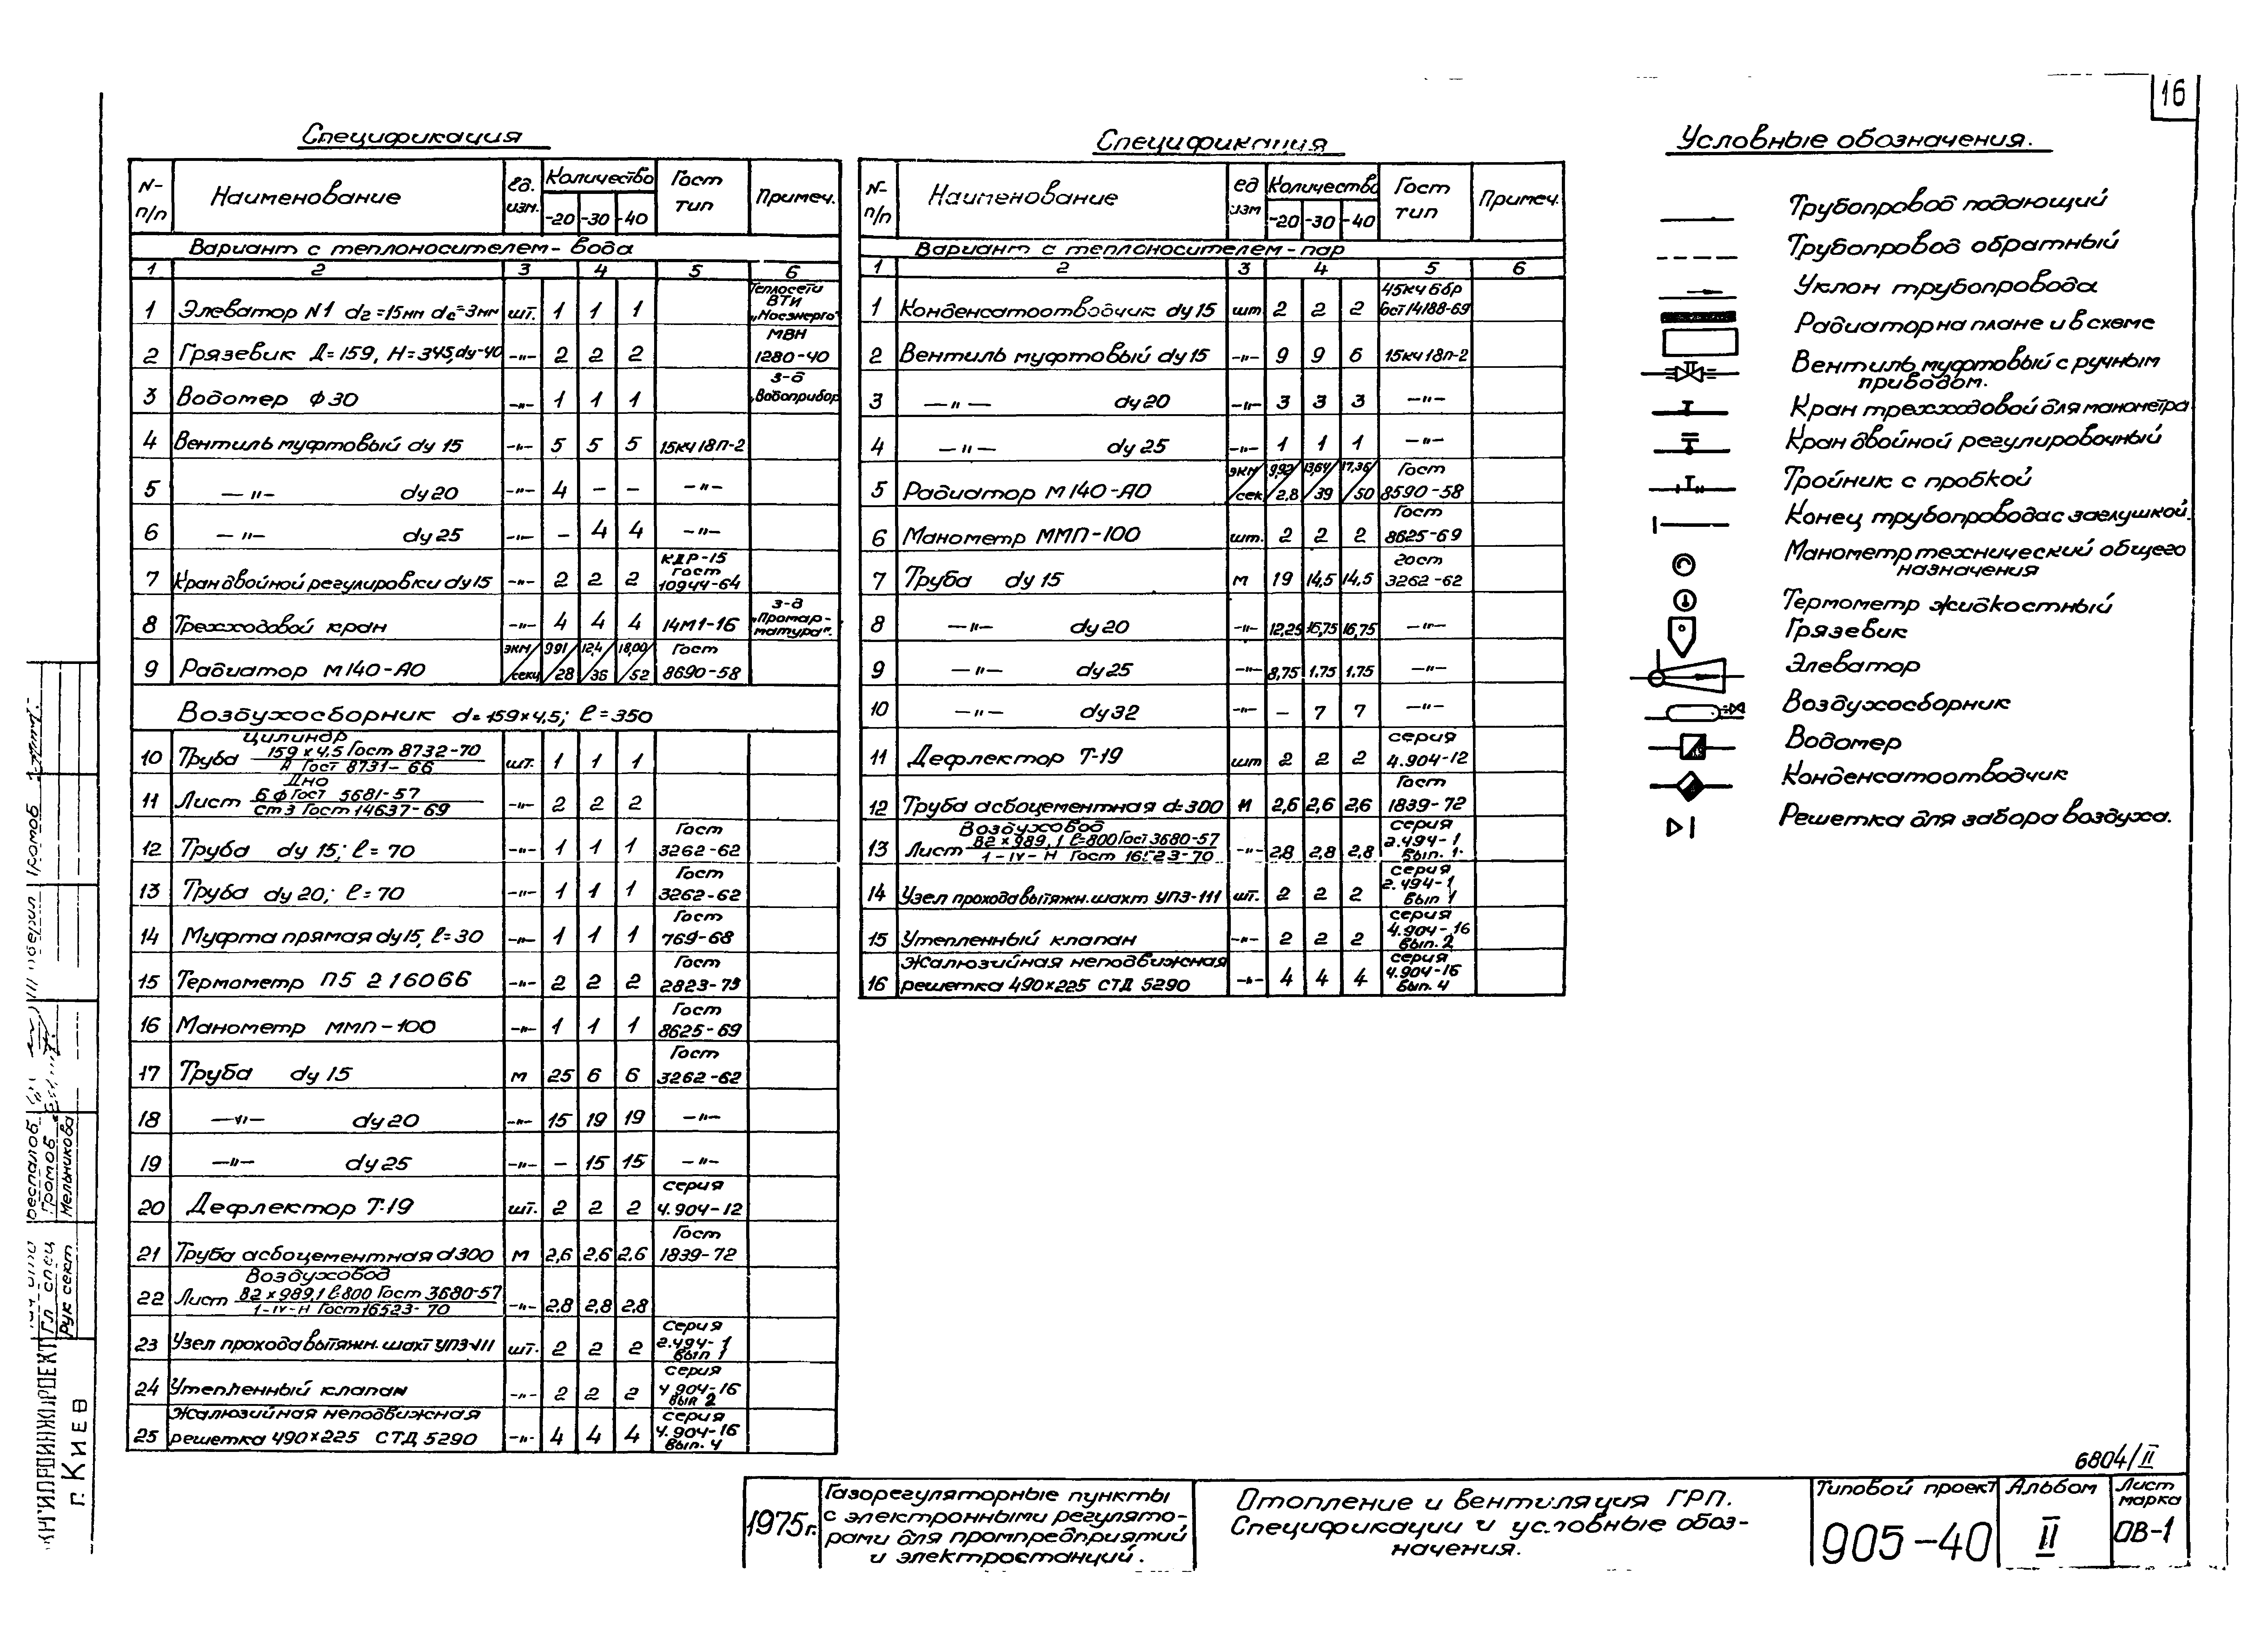 16
Спецификация
N- п/п Наименование ед. изм. Количество -20 -30 -40 Гост тип Примеч.
Вариант с теплоносителем - вода
1 2 3 4 5 6
1 Элеватор N1 dг=15мм dс=3мм шт. 1 1 1 Теплосети ВТИ „Мосэнерго"
2 Грязевик Д=159, Н=345, dу-40 -"- 2 2 2 МВН 1280-40
3 Водомер ф30 -"- 1 1 1 з-д „Водоприбор
4 Вентиль муфтовый dу 15 -"- 5 5 5 15кч18п-2
5 -"- dу20 -"- 4 - - -"-
6 -"- dу25 -"- - 4 4 -"-
7 Кран двойной регулировки dу15 -"- 2 2 2 КДР-15 Гост 10944-64
8 Трехходовой кран -"- 4 4 4 14М1-16 з-д „Промарматура".
9 Радиатор М140-АО экм/секц 9,91/28 12,4/36 18,00/52 Гост 8690-58
Воздухосборник d=159×4,5; ℓ=350
10 Труба цилиндр 159×4.5 Гост 8732-70 / А Гост 8731-66 шт. 1 1 1
11 Лист Дно Б ф Гост 5681-57 / Ст3 Гост 14637-69 -"- 2 2 2
12 Труба dу 15; ℓ=70 -"- 1 1 1 Гост 3262-62
13 Труба dу 20; ℓ=70 -"- 1 1 1 Гост 3262-62
14 Муфта прямая dу15, ℓ=30 -"- 1 1 1 Гост 769-68
15 Термометр П5 2 160 66 -"- 2 2 2 Гост 2823-73
16 Манометр ММП-100 -"- 1 1 1 Гост 8625-69
17 Труба dу 15 м 25 6 6 Гост 3262-62
18 -"- dу20 -"- 15 19 19 -"-
19 -"- dу25 -"- - 15 15 -"-
20 Дефлектор Т-19 шт. 2 2 2 серия 4.904-12
21 Труба асбоцементная d300 м 2,6 2,6 2,6 Гост 1839-72
22 Лист Воздуховод 82×989,1 ℓ-800 Гост 3680-57 / 1-IV-Н Гост 16523-70 -"- 2,8 2,8 2,8
23 Узел прохода вытяжн. шахт УПЗ-111 шт. 2 2 2 серия 2.494-1 вып 1
24 Утепленный клапан -"- 2 2 2 серия 4.904-16 вып 2
25 Жалюзийная неподвижная решетка 490×225 СТД 5290 -"- 4 4 4 серия 4.904-16 вып. 4
Спецификация
N- п/п Наименование ед изм Количество -20 -30 -40 Гост тип Примеч.
Вариант с теплоносителем - пар
1 2 3 4 5 6
1 Конденсатоотводчик dу15 шт 2 2 2 45кч6бр Гост14188-69
2 Вентиль муфтовый dу15 -"- 9 9 6 15кч18п-2
3 -"- dу20 -"- 3 3 3 -"-
4 -"- dу25 -"- 1 1 1 -"-
5 Радиатор М140-АО экм/сек 9,92/2,8 13,64/39 17,36/50 Гост 8590-58
6 Манометр ММП-100 шт. 2 2 2 Гост 8625-69
7 Труба dу 15 м 19 14,5 14,5 гост 3262-62
8 -"- dу20 -"- 12,25 16,75 16,75 -"-
9 -"- dу25 -"- 8,75 1,75 1,75 -"-
10 -"- dу32 -"- - 7 7 -"-
11 Дефлектор Т-19 шт 2 2 2 серия 4.904-12
12 Труба асбоцементная d=300 м 2,6 2,6 2,6 Гост 1839-72
13 Лист Воздуховод 82×989,1 ℓ=800 Гост 3680-57 / 1-IV-Н Гост 16523-70 -"- 2,8 2,8 2,8 серия 2.494-1 вып. 1.
14 Узел прохода вытяжн. шахт УПЗ-111 шт. 2 2 2 серия 2.494-1 вып 1
15 Утепленный клапан -"- 2 2 2 серия 4.904-16 вып. 2
16 Жалюзийная неподвижная решетка 490×225 СТД 5290 -"- 4 4 4 серия 4.904-16 вып. 4
Условные обозначения.
Трубопровод подающий
Трубопровод обратный
Уклон трубопровода
Радиатор на плане и в схеме
Вентиль муфтовый с ручным
приводом.
Кран трехходовой для манометра
Кран двойной регулировочный
Тройник с пробкой
Конец трубопровода с заглушкой.
Манометр технический общего
назначения
Термометр жидкостный
Грязевик
Элеватор
Воздухосборник
Водомер
Конденсатоотводчик
Решетка для забора воздуха.
6804/II
1975г.
Газорегуляторные пункты
с электронными регулято-
рами для промпредприятий
и электростанций.
Отопление и вентиляция ГРП.
Спецификации и условные обоз-
начения.
Типовой проект
905-40
Альбом
II
Лист
марка
ОВ-1
г. Киев
Гл спец Громов
Рук сект Мельникова
Громов